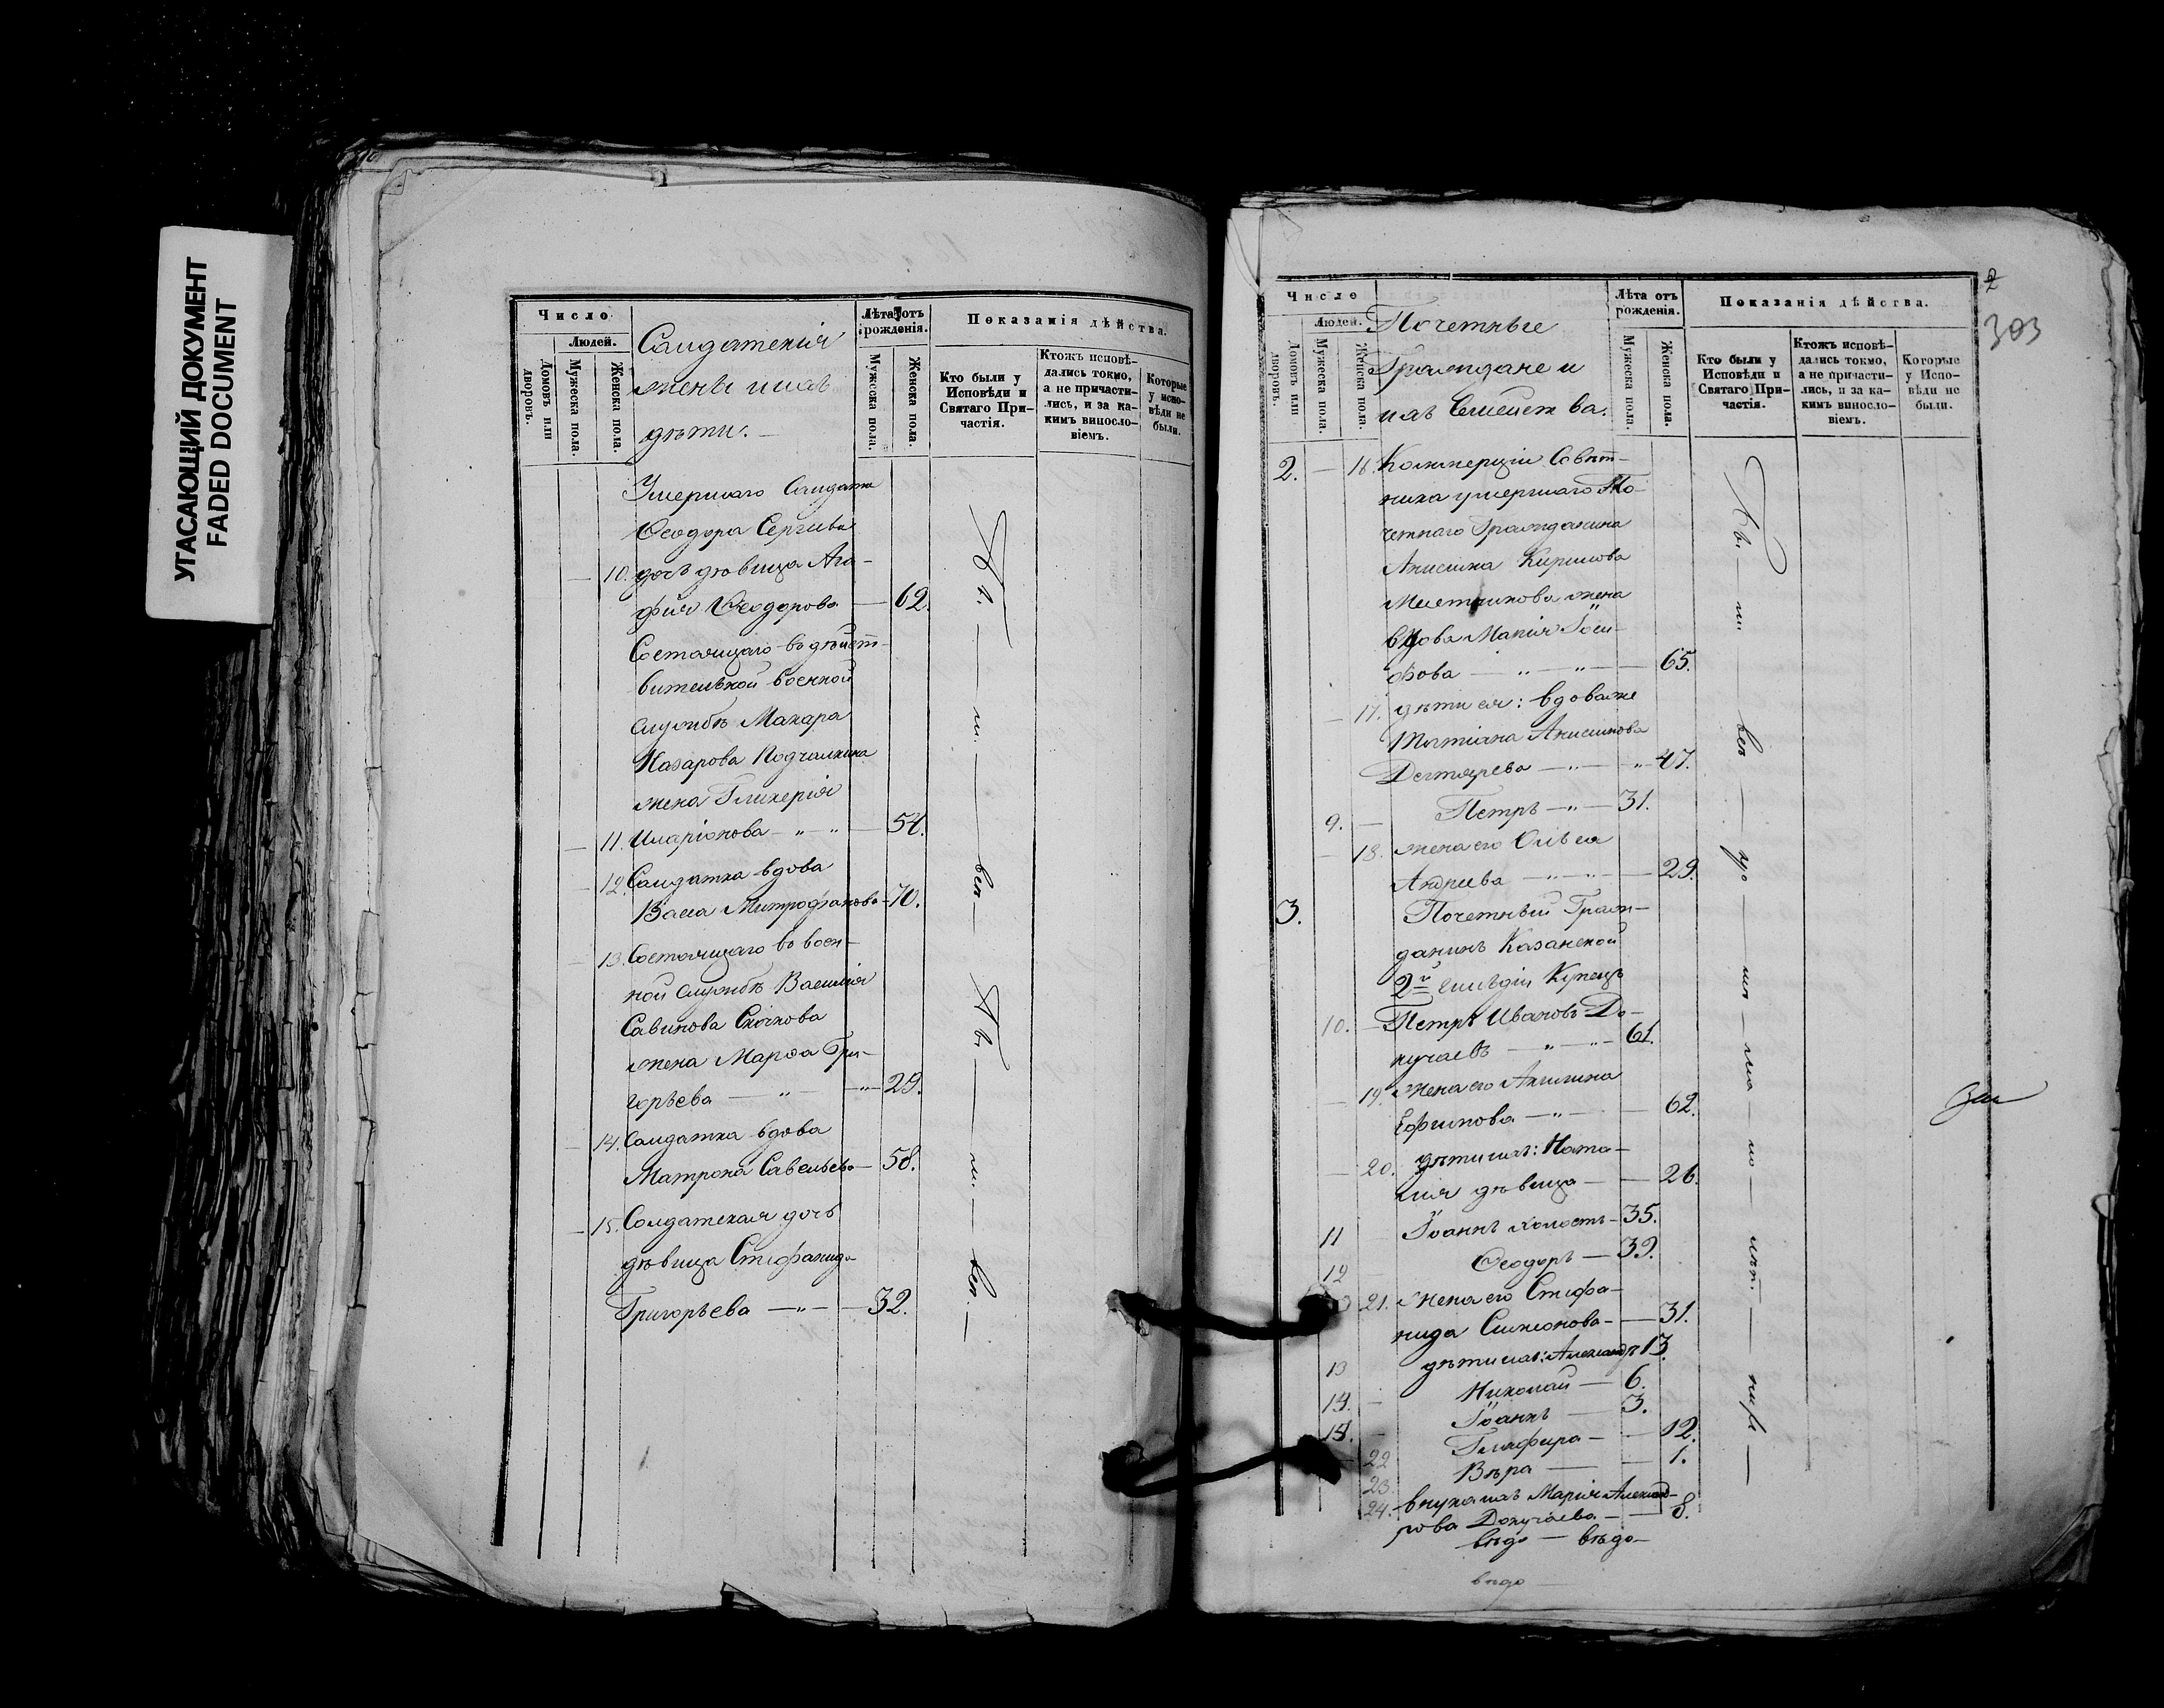 УГАСАЮЩИЙ ДОКУМЕНТ
FADED DOCUMENT
Число
Людей.
Домовъ или дворовъ.
Мужеска пола.
Женска пола.
Солдатскія
жены и ихъ
дѣти. —
Лѣта отъ рожденія.
Мужеска пола.
Женска пола.
Показанія дѣйства.
Кто были у Исповѣди и Святаго Причастія.
Ктожъ исповѣдались токмо, а не причастились, и за какимъ винословіемъ.
Которые у исповѣди не были.
Умершаго Солдата
Ѳеодора Сергѣева
— 10. дочь дѣвица Ага-
фія Ѳеодорова — 62.
Состоящаго въ дѣйст-
вительной военной
службѣ Макара
Назарова Подчалкина
жена Гликерія
— 11. Иларіонова — „ — „ — 54.
— 12. Солдатка вдова
Васса Митрофанова — 70.
— 13. Состоящаго въ воен-
ной службѣ Василія
Савинова
жена Марѳа Гри-
горьева — „ — „ — 29.
— 14. Солдатка вдова
Матрона Савельева — 58.
— 15. Солдатская дочь
дѣвица Стефанида
Григорьева — „ — — 32.
2
303
Число
Людей.
Домовъ или дворовъ.
Мужеска пола.
Женска пола.
Почетные
Граждане и
ихъ Семейства.
Лѣта отъ рожденія.
Мужеска пола.
Женска пола.
Показанія дѣйства.
Кто были у Исповѣди и Святаго Причастія.
Ктожъ исповѣдались токмо, а не причастились, и за какимъ винословіемъ.
Которые у Исповѣди не были.
2. — 16. Коммерціи Совѣт-
ника умершаго По-
четнаго Гражданина
Анисима Кирилова
жена
вдова Марія Іоси-
фова — „ — „ — 65.
— 17. дѣти ея: вдова же
Татіана Анисимова
Дегтярева — „ — „ 47.
9. — Петръ — „ — 31.
— 18. жена его Ольга
Андреева — „ — „ — 29.
3. Почетный Граж-
данинъ Казанской
2й Гильдіи Купецъ
10. — Петръ Ивановъ До-
кучаевъ — „ — „ — 61.
— 19. жена его
Ефимова — „ — — 62.
— 20. дѣти ихъ: Ната-
лія дѣвица — — 26.
11 Іоаннъ холостъ — 35.
12 — Ѳеодоръ — 39.
21. жена его Стефа-
нида Симеонова — — 31.
13 дѣти ихъ: Александръ 13.
14. — Николай — 6.
15. — Іоаннъ — 3.
— 22 Глафира — — 12.
23. Вѣра — — 1.
24. внука ихъ Марія Александ-
рова Докучаева — — 8.